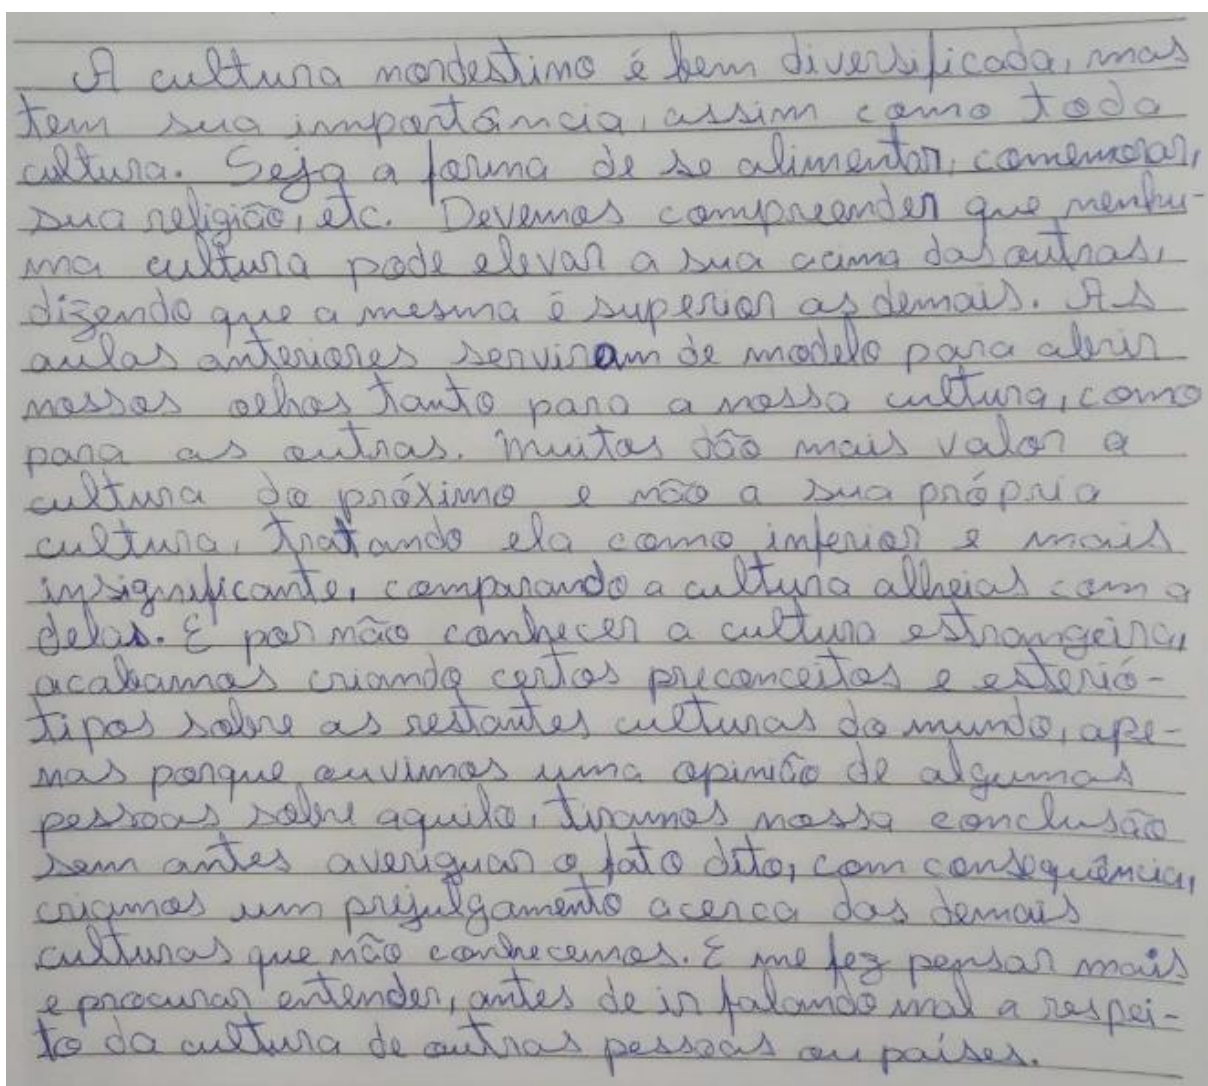 A cultura nordestina é bem diversificada, mas
tem sua importância, assim como toda
cultura. Seja a forma de se alimentar, comemorar,
sua religião, etc. Devemos compreender que nenhu-
ma cultura pode elevar a sua acima das outras,
dizendo que a mesma é superior as demais. As
aulas anteriores serviram de modelo para abrir
nossos olhos tanto para a nossa cultura, como
para as outras. Muitos dão mais valor a
cultura do próximo e não a sua própria
cultura, tratando ela como inferior e mais
insignificante, comparando a cultura alheias com a
delas. E por não conhecer a cultura estrangeira,
acabamos criando certos preconceitos e esterió-
tipos sobre as restantes culturas do mundo, ape-
nas porque ouvimos uma opinião de algumas
pessoas sobre aquilo, tiramos nossa conclusão
sem antes averiguar o fato dito, com consequência,
criamos um prejulgamento acerca das demais
culturas que não conhecemos. E me fez pensar mais
e procurar entender, antes de ir falando mal a respei-
to da cultura de outras pessoas ou países.